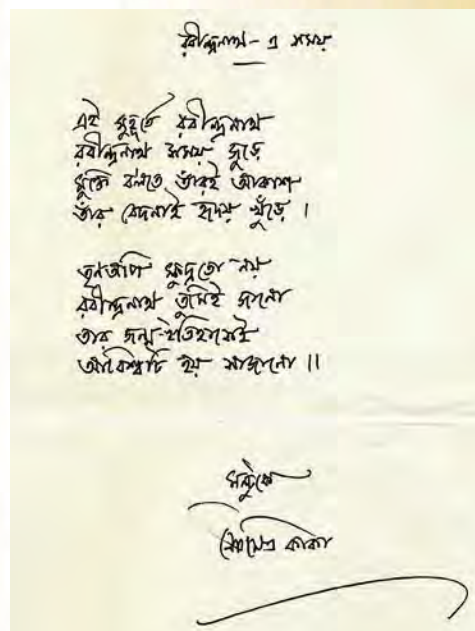 রবীন্দ্রনাথ - এ সময়
এই মুহূর্তে রবীন্দ্রনাথ
রবীন্দ্রনাথ সময় জুড়ে
মুক্তি বলতে তাঁরই আকাশ
তাঁর বেদনাই হৃদয় খুঁড়ে ।
তৃণঅপি ক্ষুদ্রতো নয়
রবীন্দ্রনাথ তুমিই জানো
তার জন্ম-ইতিহাসেই
আবিশ্বটি হয় সাজানো ॥
কাকা